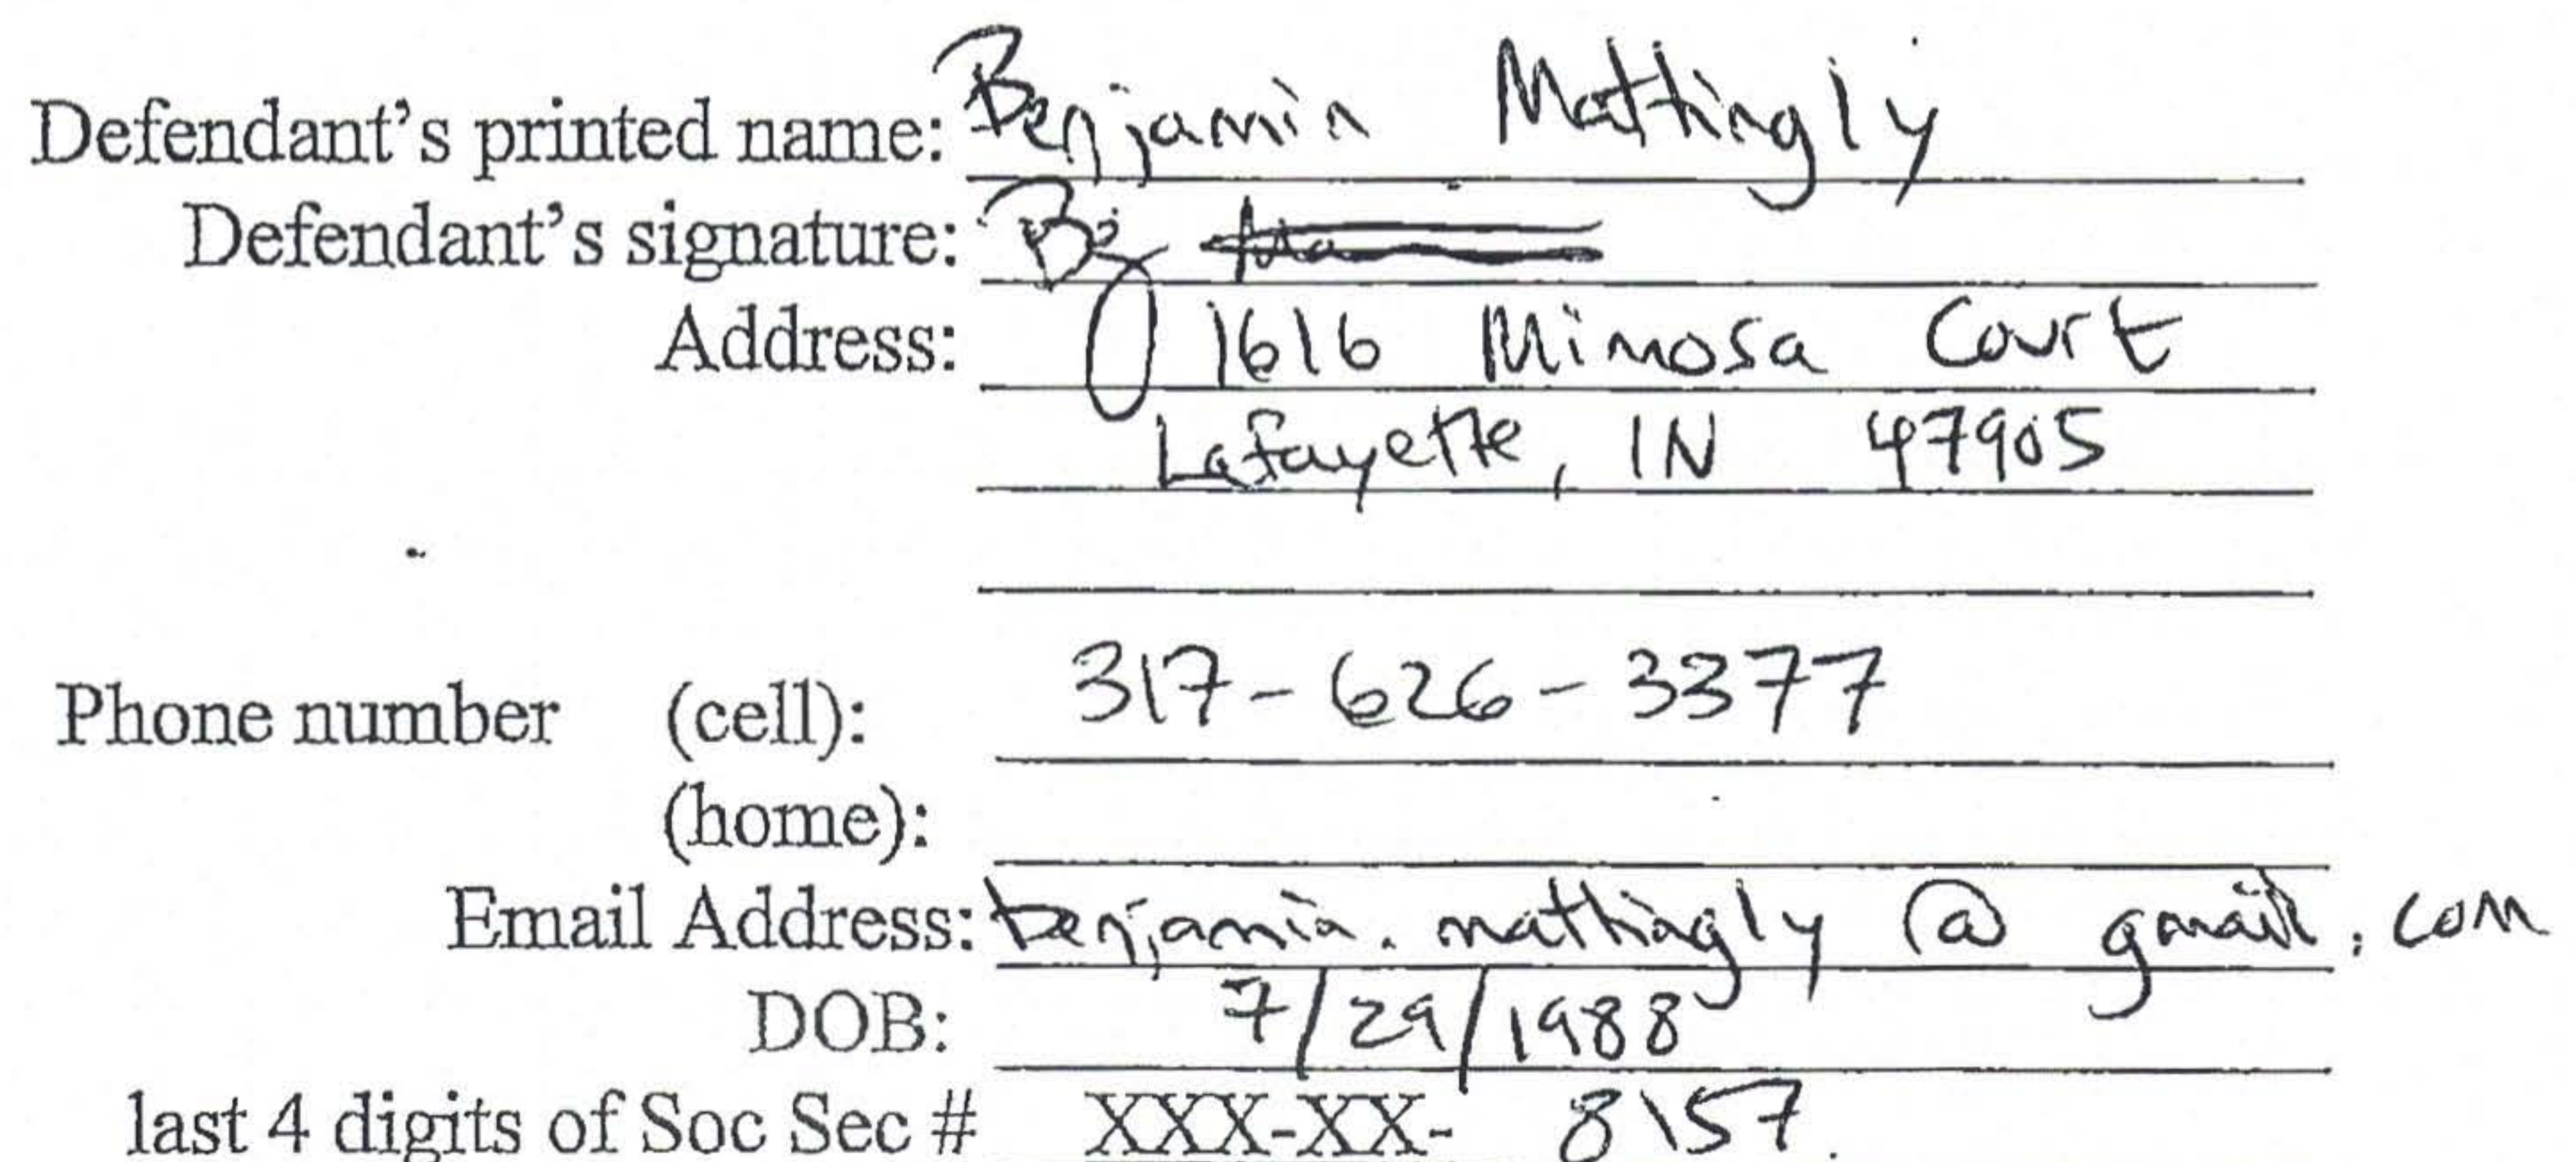 Defendant's printed name: Benjamin Mattingly
Defendant's signature:
Address: 1616 Mimosa Court
Lafayette, IN 47905
Phone number (cell): 317-626-3377
(home):
Email Address: benjamin.mattingly @ gmail.com
DOB: 7/29/1988
last 4 digits of Soc Sec # XXX-XX- 8157